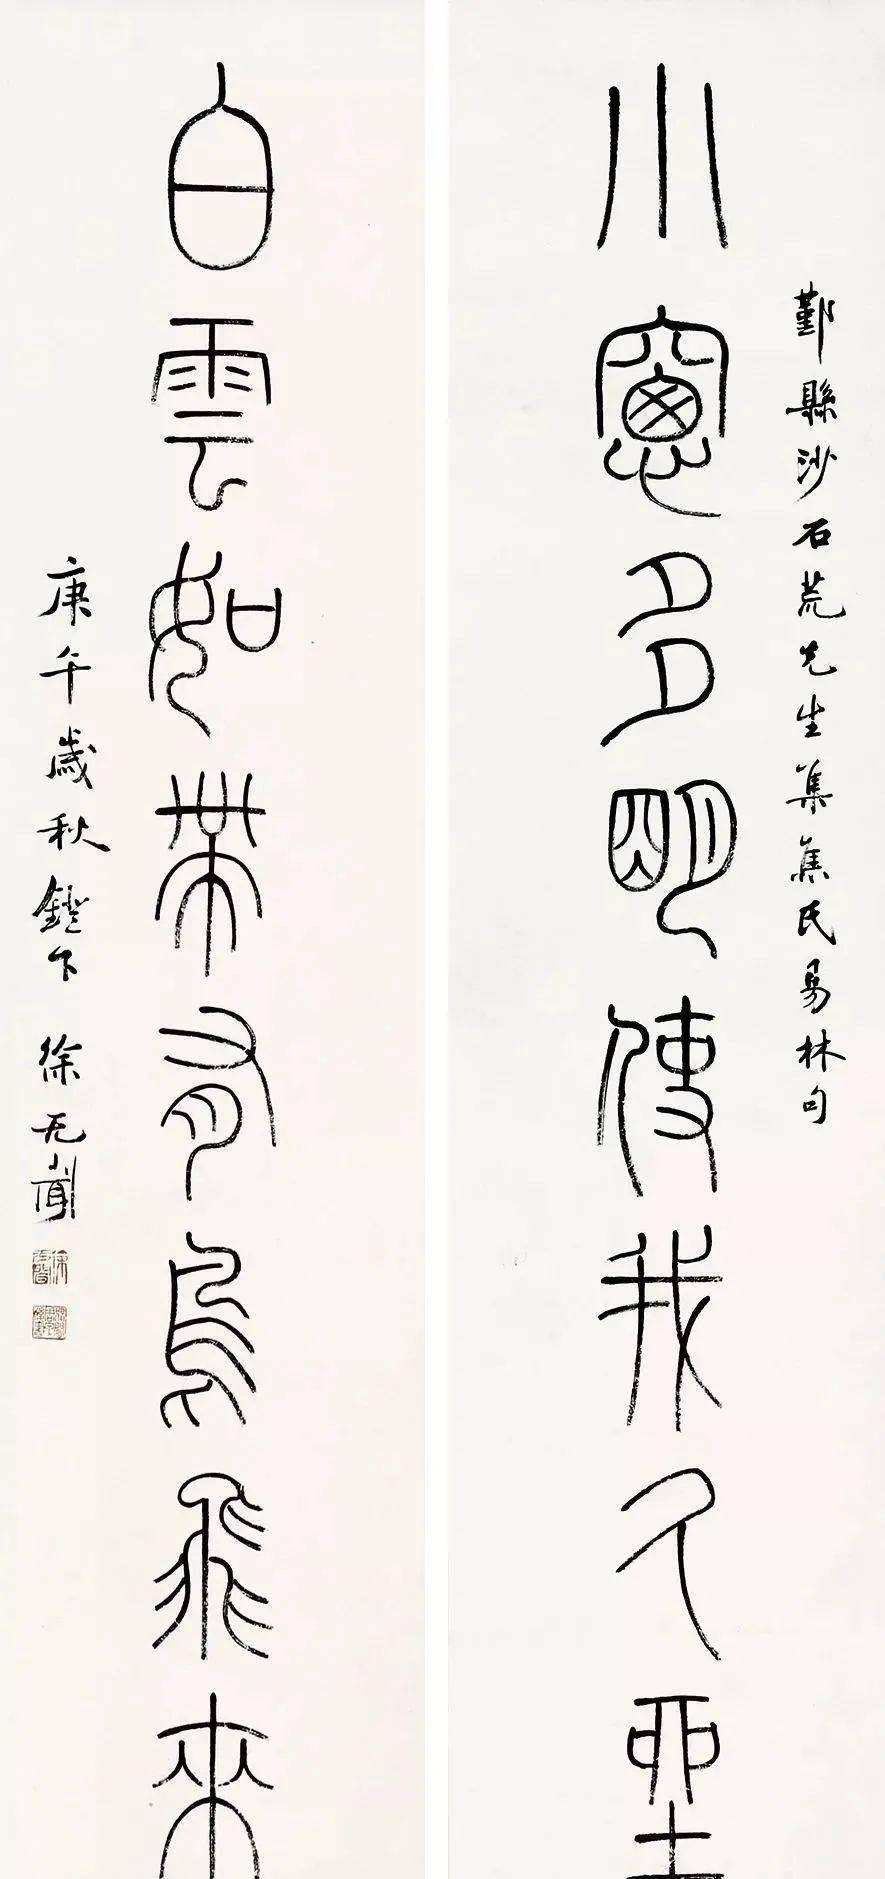 鄞縣沙石荒先生集焦氏易林句
小窻多明使我久坐
白雲如帶有鳥飛來
庚午歲秋鐙下 徐无聞